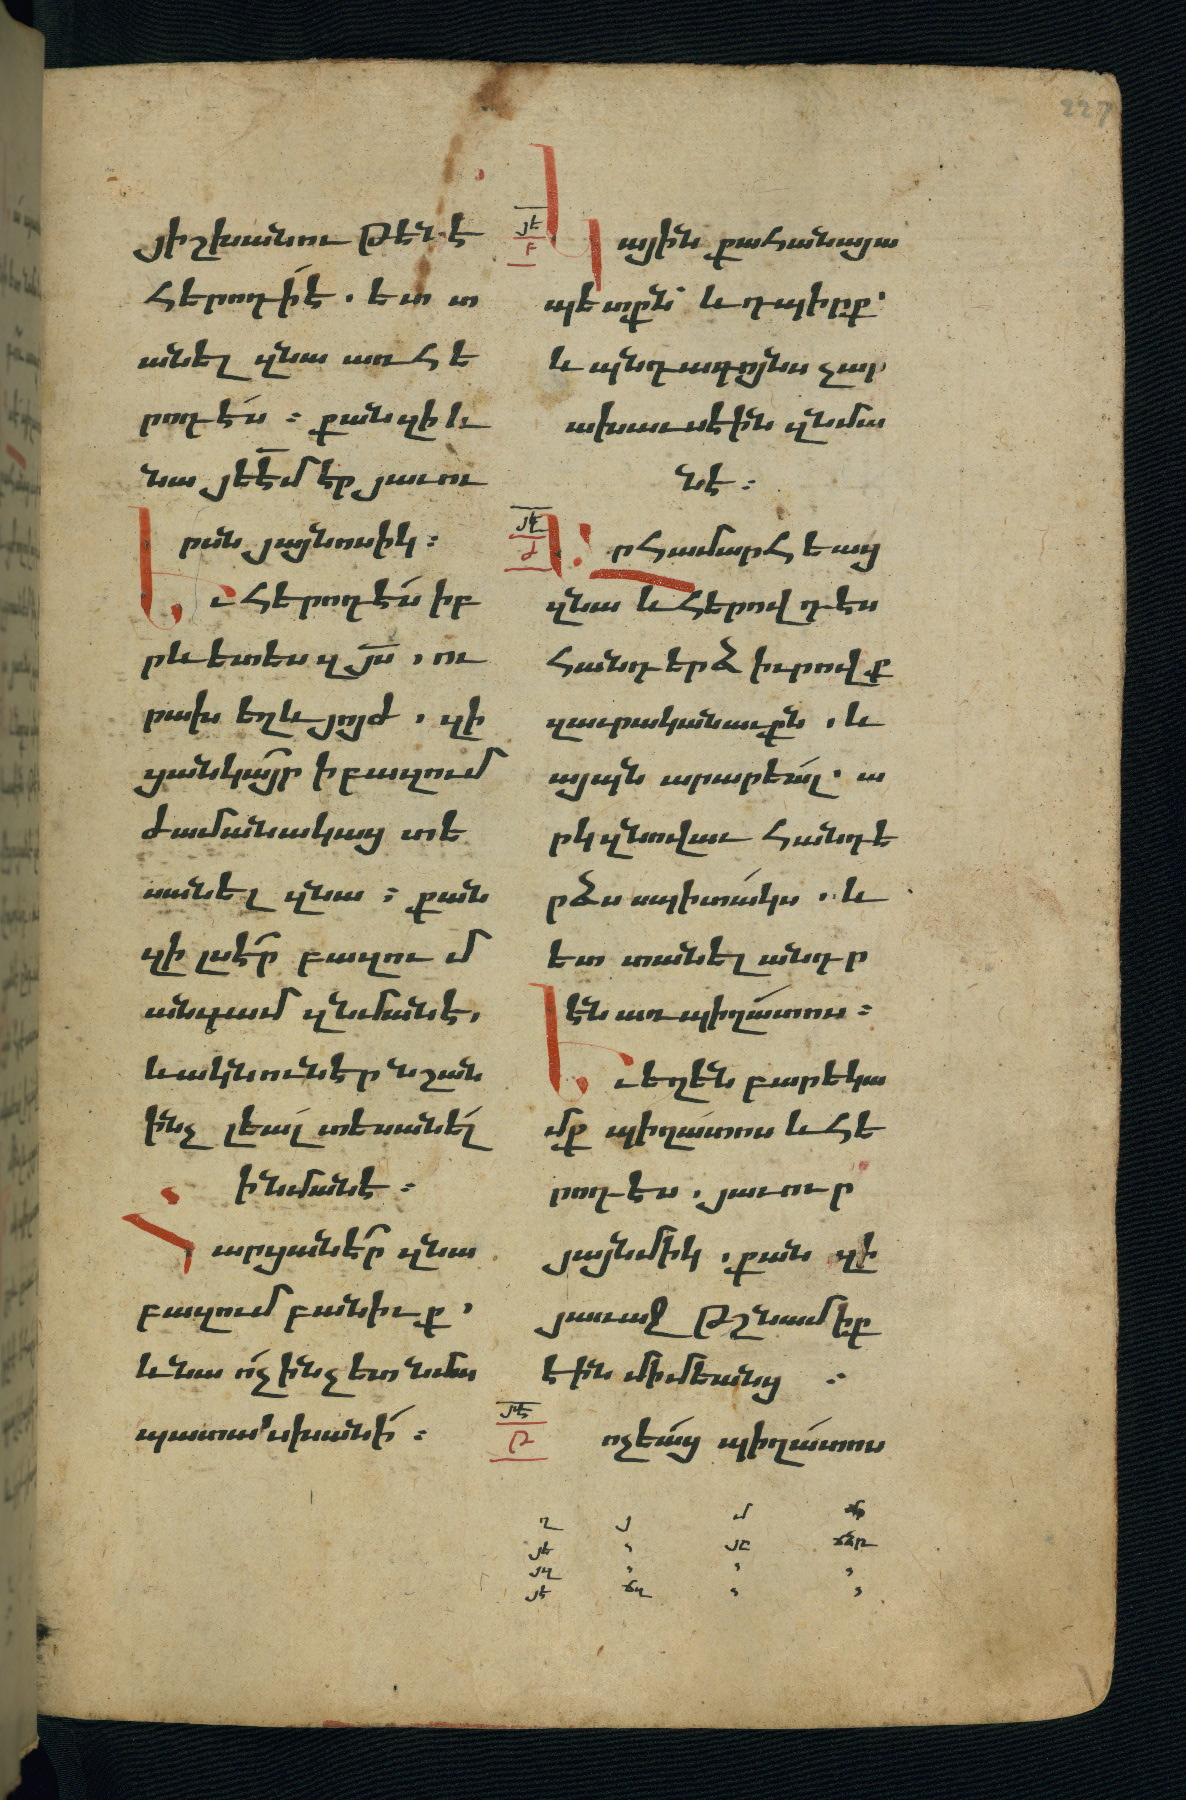 227
յիշխանութենէ
հերոդիէ. ետ տ
անել զնա առ հե
րոդէս : քանզի և
նա յեէմ էր յաւու
րսն յայնոսիկ :
Եւ հերոդէս իբ
րև ետես զյս, ու
րախ եղև յոյժ, զի
ցանկայր ի բազում
ժամանակաց տե
սանել զնա : քան
զի լսէր բազում
անգամ զնմանէ,
և ակն ունէր նշան
ինչ լեալ տեսանել
ի նմանէ :
Հարցանէր զնա
բազում բանիւք,
և նա ոչ ինչ ետ նմա
պատասխանի :
Կային քահանայա
պետքն և դպիրք.
և պնդագոյնս չար
ախաւսէին զնմա
նէ :
Արհամարհեաց
զնա և հերովդէս
հանդերձ իւրովք
զաւրականաւքն, և
այպն արարեալ. ա
րկ զնովաւ հանդե
րձս սպիտակս, և
ետ տանել անդր
էն առ պիղատոս :
Եւ եղեն բարեկա
մք պիղատոս և հե
րոդէս, յաւուր
յայնմիկ, քանզի
յառաջ թշնամիք
էին միմեանց :
ոչեաց պիղատոս